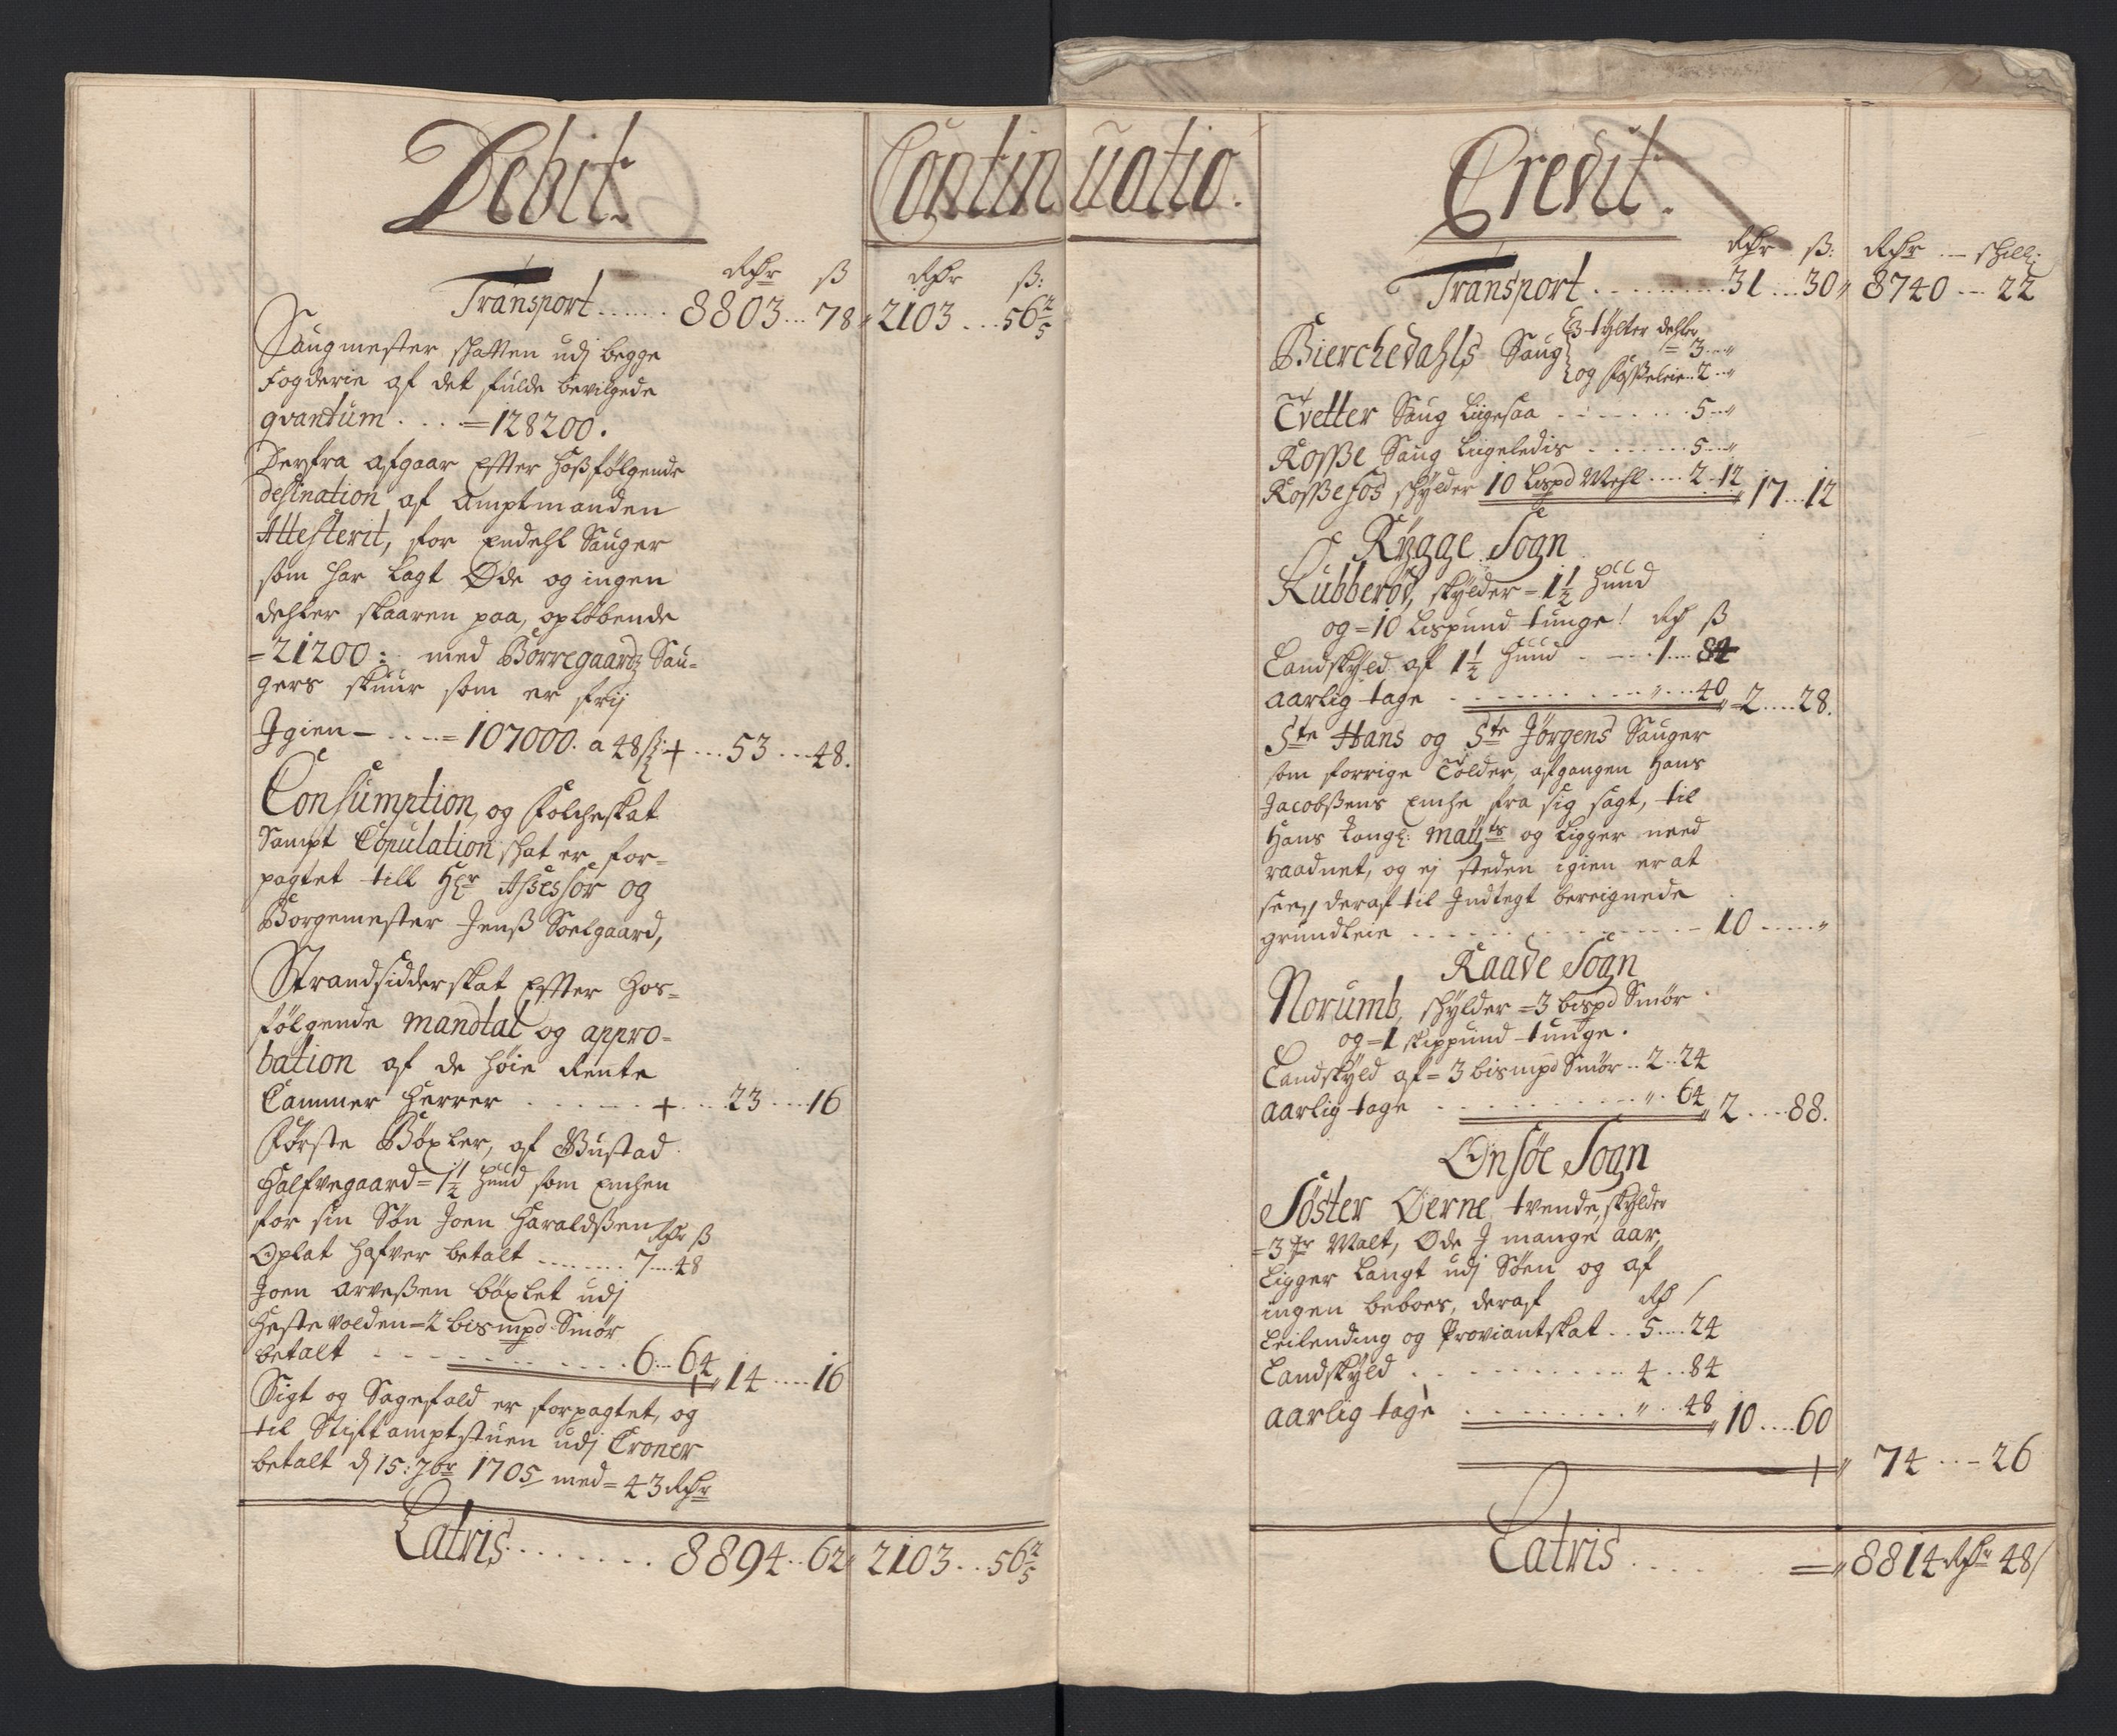 Debit.
Continuatio.
Rdr ß Rdr ß:
Transport ...... 8803 ... 78 2103 ... 56 2/5
Saugmester skatten udj begge
Fogderie af det fulde bevilgede
qvantum .... = 128200.
Derfra afgaar Efter hoßfølgende
desination af Amptmanden
Attesterit, for Endehl Sauger
som har lagt Øde og ingen
dehler skaaren paa, opløbende
= 21200: med Borregaards Sau=
gers skuur som er frij
Igien - .... = 107000. a 48 ß + ... 53 ... 48.
Consumption, og Folcheskat
Sampt Copulation skat er for=
pagtet till Hr Assessor og
Borgemester Jenß Soelgaard,
Strandsidderskat Efter hos=
følgende mandtal og appro=
bation af de høie Rente
Cammer Herrer ...... + ... 23 ... 16
Første Bøxler, af Bustad
Halfvegaard = 1 1/2 hund som Enchen
for sin Søn Joen Haraldßen Rdr ß
Oplat hafver betalt ........ 7 ... 48
Joen Arveßen böxlet udj
Hestevolden = 2 bismpd Smör
betalt .......... 6 ... 64 14 .... 16
Sigt og Sagefald er forpagtet, og
til Stiftamptstuen udj Croner
betalt d 15: 7br 1705 med = 43 Rdr
Latris ....... 8894 .. 62 2103 ... 56 2/5
Credit.
Rdr ß: Rdr - skill:
Transport ........ 31 ... 30 8740 --- 22
Bierchedahls Saug 3 tylter dehler = 3 ... "
og Foßeleie .. 2 .. "
Tvetter Saug Liigesaa ....... 5 .. "
Roßße Saug Liigeledis ....... 5 ... "
Roßßefos skylder 10 Lispd Mehl .... 2 . 12 17 ... 12
Rygge Sogn
Rubberød, skylder = 1 1/2 hund
og = 10 Lispund tunge! Rd ß
Landskyld af 1 1/2 hund .... 1 ... 84
aarlig tage ........ " ... 40 = 2 .... 28.
Ste Hans og Ste Jørgens Sauger
som forrige Tolder, afgangen Hans
Jacobßens Enche fra sig sagt, til
Hans Kongl: Maÿts og Ligger need
raadnet, og ej steden igien er at
see, deraf til Indtegt bereignede
grundleie .............. 10 ..... "
Raade Sogn
Norumb, skylder = 3 bispd Smör
og = 1 skippund tunge.
Landskyld af = 3 bismpd Smör .. 2 .. 24
aarlig tage .......... " . 64 2 .... 88.
Onsöe Sogn
Söster Öerne tvende, skylder
= 3 Malt, Øde I mange aar,
Ligger Langt udj Søen og af
ingen beboes, deraf Rd /
Leilending og Proviantskat .. 5 .... 24
Landskyld .......... 4 ... 84
aarlig tage ........ " .. 48 10 .... 60
+ 74 ... 26
Latris ..... = 8814 Rdr 48/